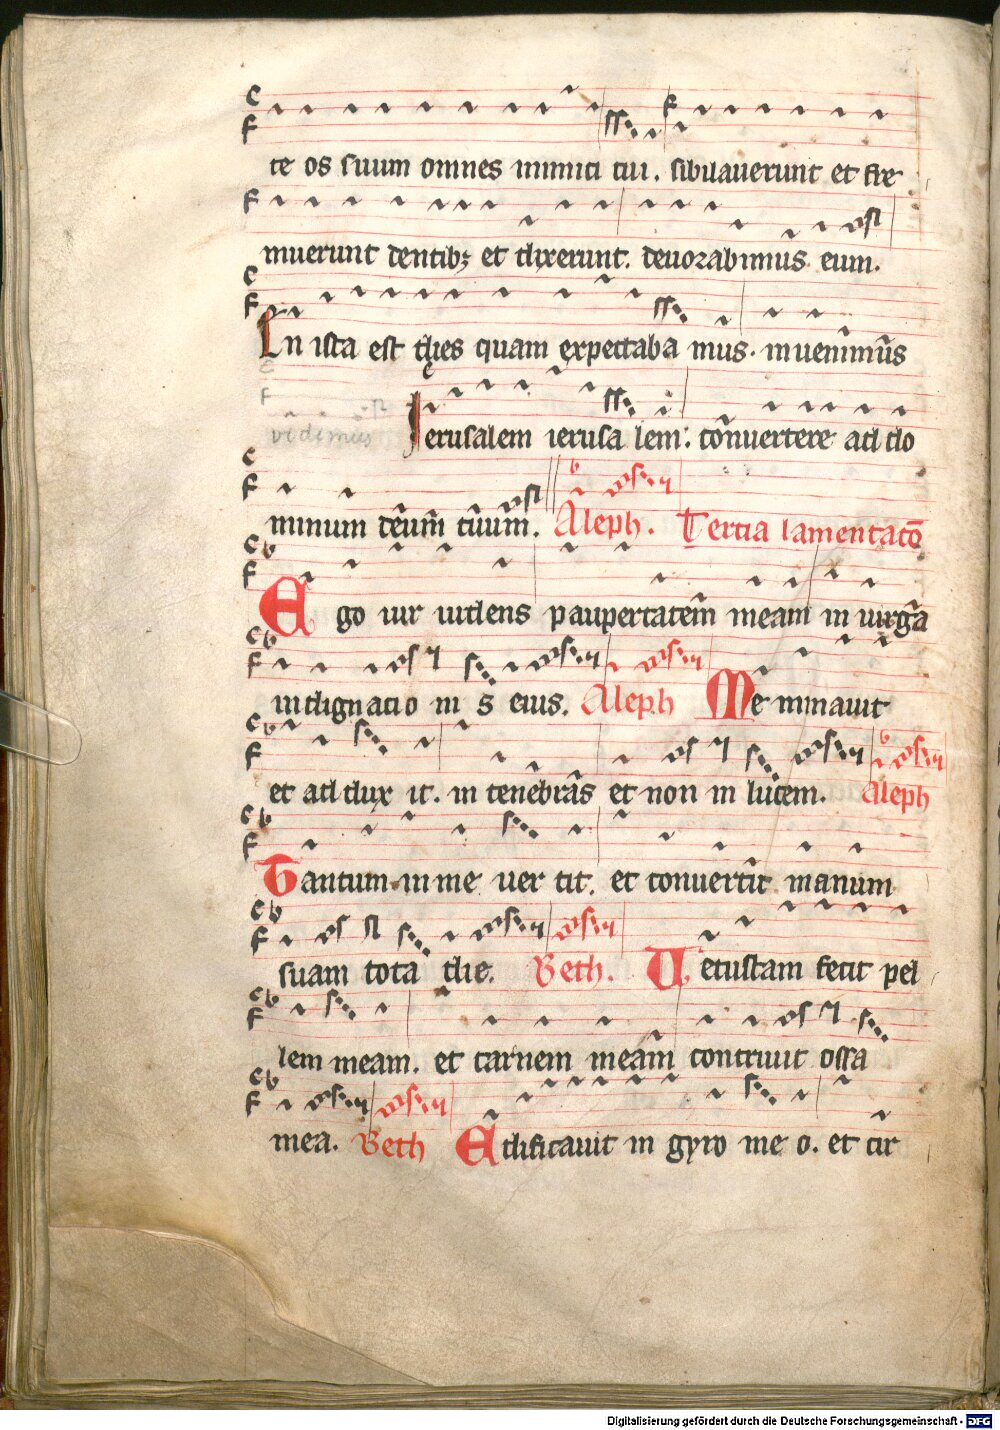 te os suum omnes inimici tui. sibilauerunt et fre
muerunt dentibꝫ et dixerunt. deuorabimus eum.
En ista est dies quam expectaba mus. inuenimꝰ
vidimus Jerusalem ierusa lem. conuertere ad do
minum deum tuum. Aleph. Tertia lamentatō
Ego uir uidens paupertatem meam in uirga
indignatio ni s eius. Aleph Me minauit
et ad dux it. in tenebras et non in lucem. Aleph
Tantum in me uer tit. et conuertit manum
suam tota die. Beth. Uetustam fecit pel
lem meam. et carnem meam contriuit ossa
mea. Beth Edificauit in gyro me o. et cir
Digitalisierung gefördert durch die Deutsche Forschungsgemeinschaft - DFG